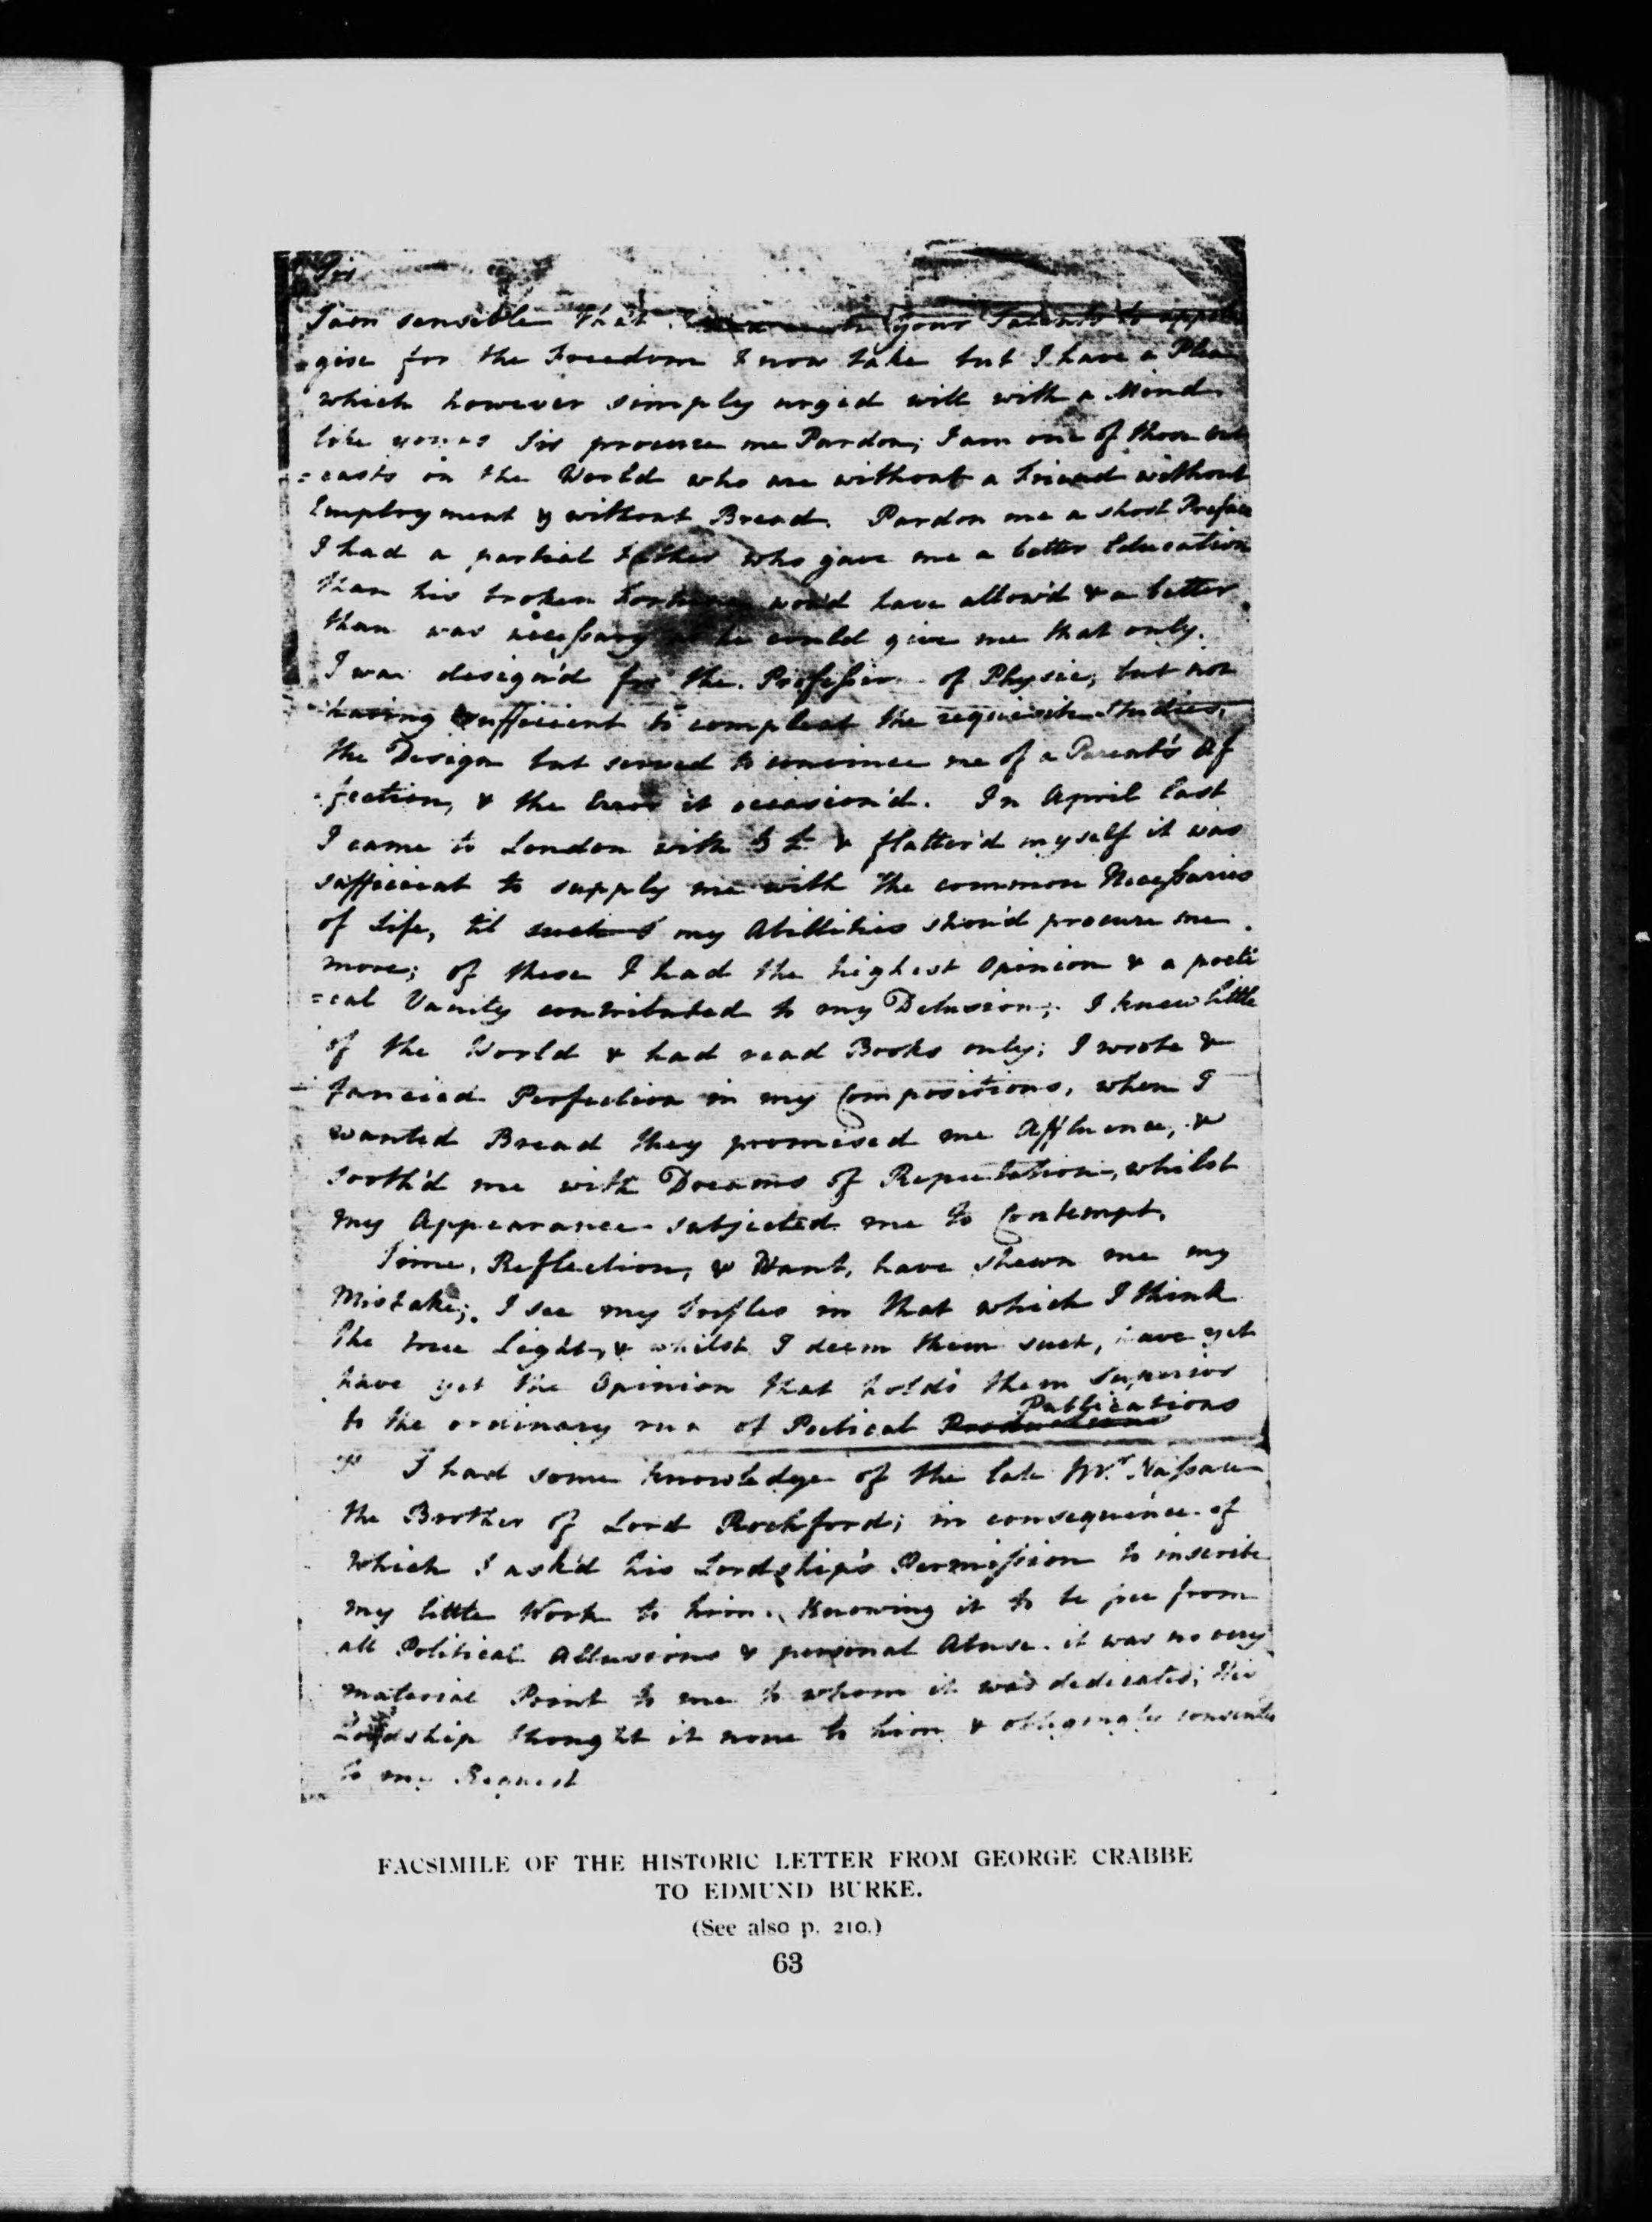 Sir
I am sensible that your Talents to apolo
=gise for the Freedom I now take but I have a Plea
which however simply urged will with a Mind
like yours Sir procure me Pardon; I am one of those out
=casts in the World who are without a Friend without
Employment & without Bread. Pardon me a short Preface
I had a partial Father who gave me a better Education
than his broken Fortune wou'd have allow'd & a better
than was necessary as he could give me that only.
I was design'd for the Profession of Physic; but not
having sufficient to compleat the requisite Studies,
the Design but served to convince me of a Parent's Af
fection, & the Error it occasion'd. In April last
I came to London with 3 £ & flatter'd myself it was
sufficient to supply me with the common Necessaries
of Life, til such my Abillities shou'd procure me
more; of these I had the highest Opinion & a poeti
=cal Vanity contributed to my Delusion; I knew little
of the World & had read Books only; I wrote &
fancied Perfection in my Compositions, when I
wanted Bread they promised me Affluence, &
sooth'd me with Dreams of Reputation, whilst
my Appearance subjected me to Contempt.
Time, Reflection, & Want, have shewn me my
Mistake; I see my Trifles in that which I think
the true Light, & whilst I deem them such, have yet
have yet the Opinion that holds them superior
Publications
to the ordinary run of Poetical Productions
I had some knowledge of the late Mr. Nassau
the Brother of Lord Rochford; in consequence of
which I ask'd his Lordship's Permission to inscribe
my little Work to him. Knowing it to be free from
all Political Allusions & personal Abuse. it was no very
material Point to me to whom it was dedicated; His
Lordship thought it none to him & obligingly consented
to my Request
FACSIMILE OF THE HISTORIC LETTER FROM GEORGE CRABBE
TO EDMUND BURKE.
(See also p. 210.)
63